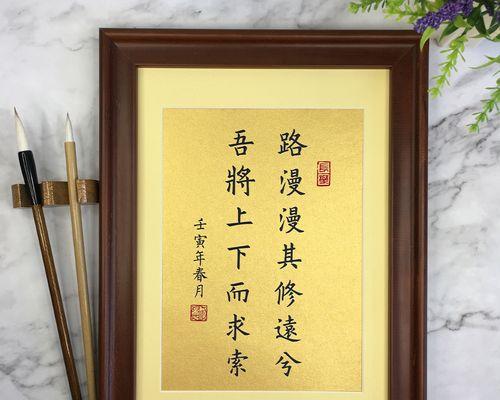 路漫漫其修遠兮
吾將上下而求索
壬寅年春月